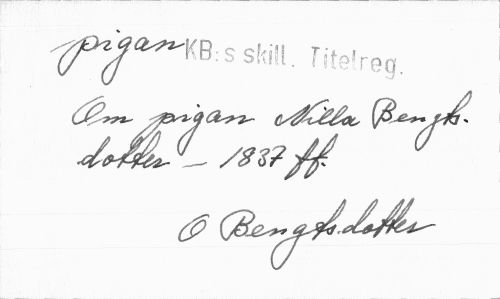 pigan KB:s skill. Titelreg.
Om pigan Nilla Bengts-
dotter – 1837 ff.
O Bengtsdotter